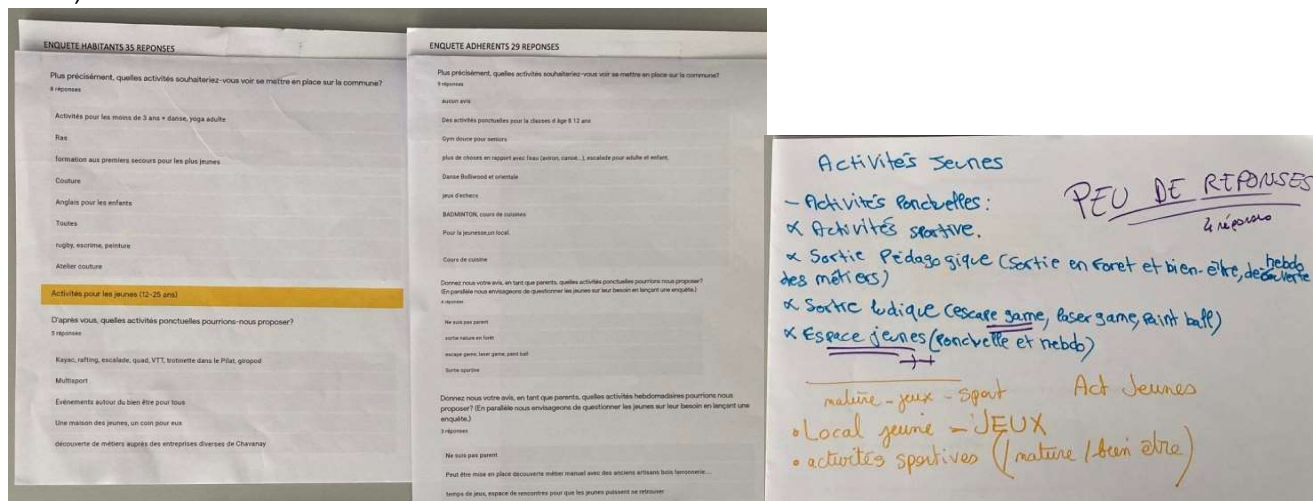 ENQUETE HABITANTS 35 REPONSES
Plus précisément, quelles activités souhaiteriez-vous voir se mettre en place sur la commune?
8 réponses
Activités pour les moins de 3 ans + danse, yoga adulte
Ras
formation aux premiers secours pour les plus jeunes
Couture
Anglais pour les enfants
Toutes
rugby, escrime, peinture
Atelier couture
Activités pour les jeunes (12-25 ans)
D'après vous, quelles activités ponctuelles pourrions-nous proposer?
5 réponses
Kayac, rafting, escalade, quad, VTT, trotinette dans le Pilat, gyropod
Multisport
Evènements autour du bien être pour tous
Une maison des jeunes, un coin pour eux
découverte de métiers auprès des entreprises diverses de Chavanay
ENQUETE ADHERENTS 29 REPONSES
Plus précisément, quelles activités souhaiteriez-vous voir se mettre en place sur la commune?
9 réponses
aucun avis
Des activités ponctuelles pour la classes d âge 8 12 ans
Gym douce pour seniors
plus de choses en rapport avec l'eau (aviron, canoë...), escalade pour adulte et enfant,
Danse Bolliwood et orientale
jeux d'echecs
BADMINTON, cours de cuisines
Pour la jeunesse,un local.
Cours de cuisine
Donnez nous votre avis, en tant que parents, quelles activités ponctuelles pourrions nous proposer?
(En parallèle nous envisageons de questionner les jeunes sur leur besoin en lançant une enquête.)
4 réponses
Ne suis pas parent
sortie nature en forêt
escape game, laser game, paint ball
Sortie sportive
Donnez nous votre avis, en tant que parents, quelles activités hebdomadaires pourrions nous
proposer? (En parallèle nous envisageons de questionner les jeunes sur leur besoin en lançant une
enquête.)
3 réponses
Ne suis pas parent
Peut être mise en place découverte métier manuel avec des anciens artisans bois ferronnerie....
temps de jeux, espace de rencontres pour que les jeunes puissent se retrouver
Activités Jeunes
PEU DE REPONSES
4 réponses
- Activités Ponctuelles :
x Activités sportive.
x Sortie Pédagogique (Sortie en Foret et bien-être, découverte hebdo
des métiers)
x Sortie ludique (escape game, laser game, Paint ball)
x Espace jeunes (ponctuelle et hebdo)
++
nature - jeux - Sport Act Jeunes
• Local jeune - JEUX
• activités sportives (/nature / bien être)